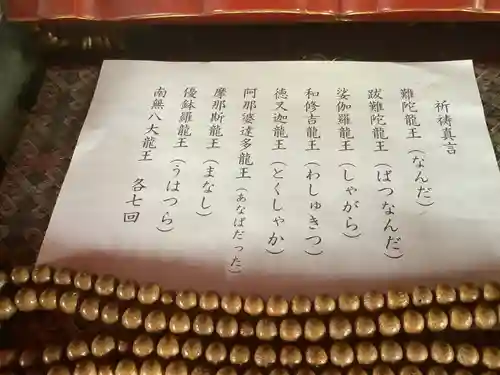 祈祷真言
難陀龍王（なんだ）
跋難陀龍王（ばつなんだ）
娑伽羅龍王（しゃがら）
和修吉龍王（わしゅきつ）
徳叉迦龍王（とくしゃか）
阿那婆達多龍王（あなばだった）
摩那斯龍王（まなし）
優鉢羅龍王（うはつら）
南無八大龍王　各七回